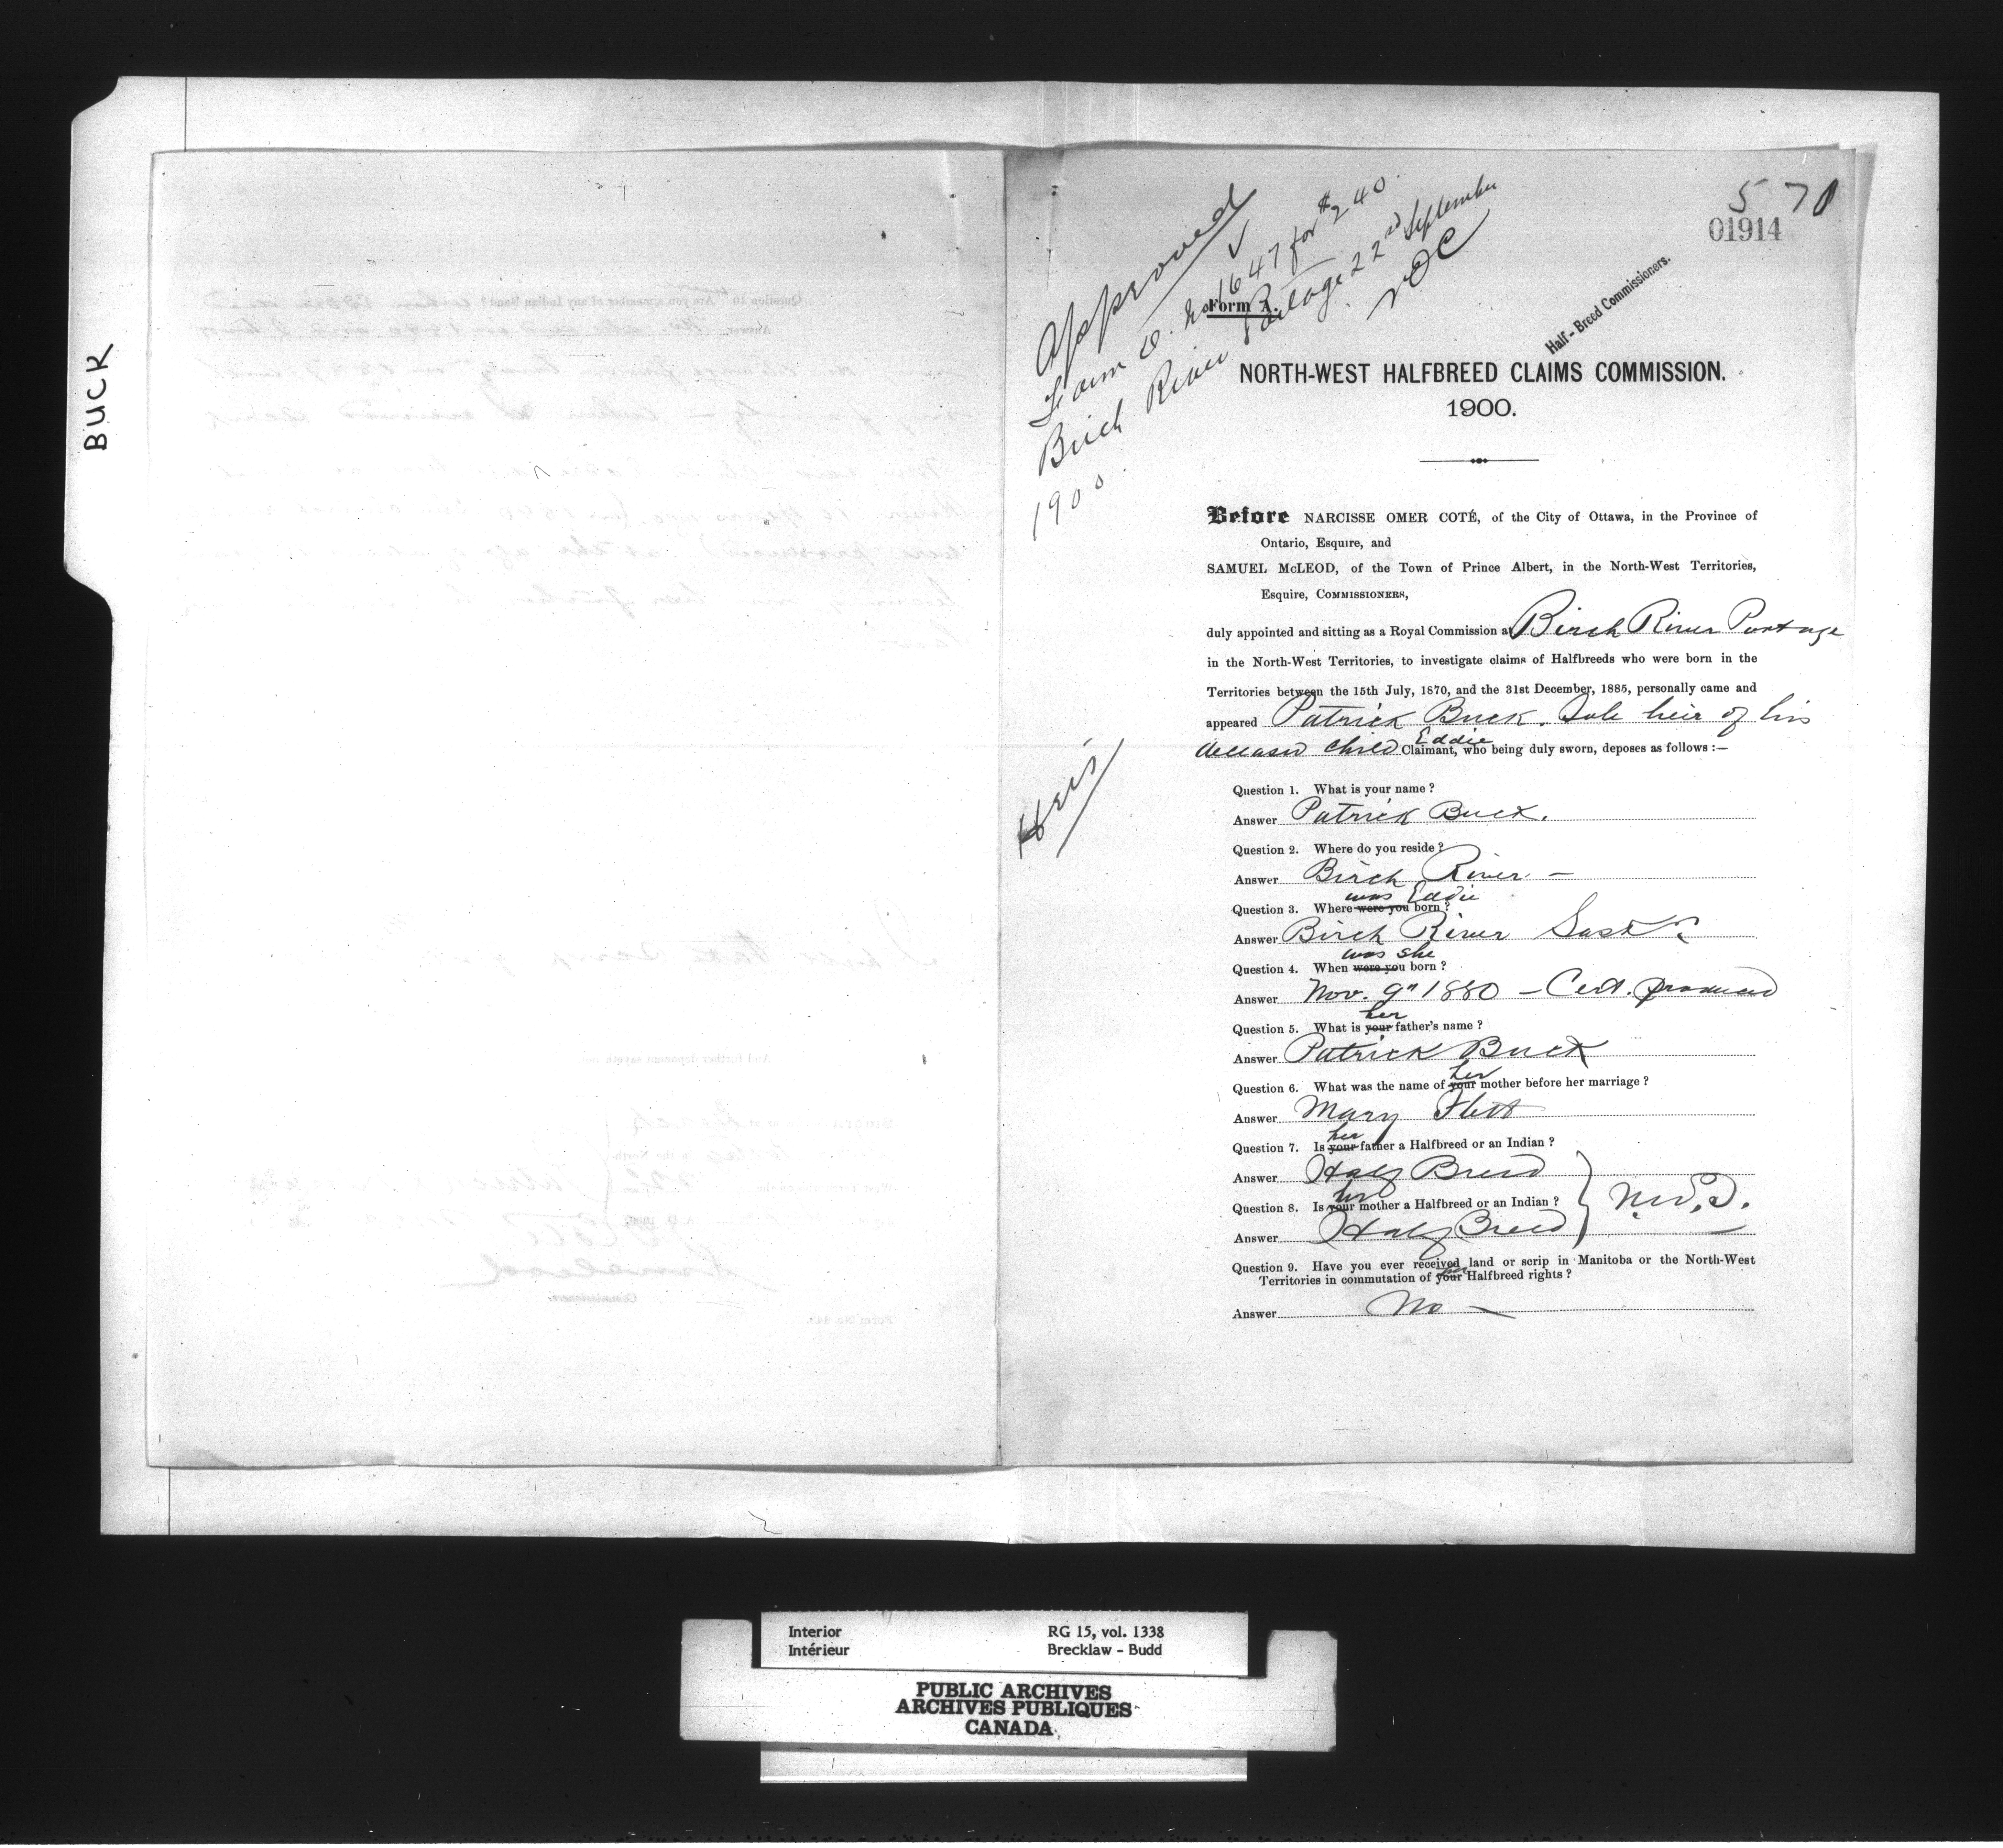 BUCK
5 70
01914
Half-Breed Commissioners.
Approved
Form D. No 1647 for $240.
Birch River Portage 22nd September
1900.
NOC
Form A.
NORTH-WEST HALFBREED CLAIMS COMMISSION.
1900.
Before NARCISSE OMER COTÉ, of the City of Ottawa, in the Province of
Ontario, Esquire, and
SAMUEL McLEOD, of the Town of Prince Albert, in the North-West Territories,
Esquire, COMMISSIONERS,
duly appointed and sitting as a Royal Commission at Birch River Portage
in the North-West Territories, to investigate claims of Halfbreeds who were born in the
Territories between the 15th July, 1870, and the 31st December, 1885, personally came and
appeared Patrick Buck. Sole heir of his
deceased child Eddie Claimant, who being duly sworn, deposes as follows :—
Heir
Question 1. What is your name ?
Answer Patrick Buck.
Question 2. Where do you reside ?
Answer Birch River —
was Eddie
Question 3. Where were you born ?
Answer Birch River Sask.
was she
Question 4. When were you born ?
Answer Nov. 9th 1880 — Cert. produced
her
Question 5. What is your father's name ?
Answer Patrick Buck
her
Question 6. What was the name of your mother before her marriage ?
Answer Mary Flett
her
Question 7. Is your father a Halfbreed or an Indian ?
Answer Half Breed
her
Question 8. Is your mother a Halfbreed or an Indian ?
N.W.T.
Answer Half Breed
Question 9. Have you ever received land or scrip in Manitoba or the North-West
Territories in commutation of your her Halfbreed rights ?
Answer No —
Interior
Intérieur
RG 15, vol. 1338
Brecklaw - Budd
PUBLIC ARCHIVES
ARCHIVES PUBLIQUES
CANADA